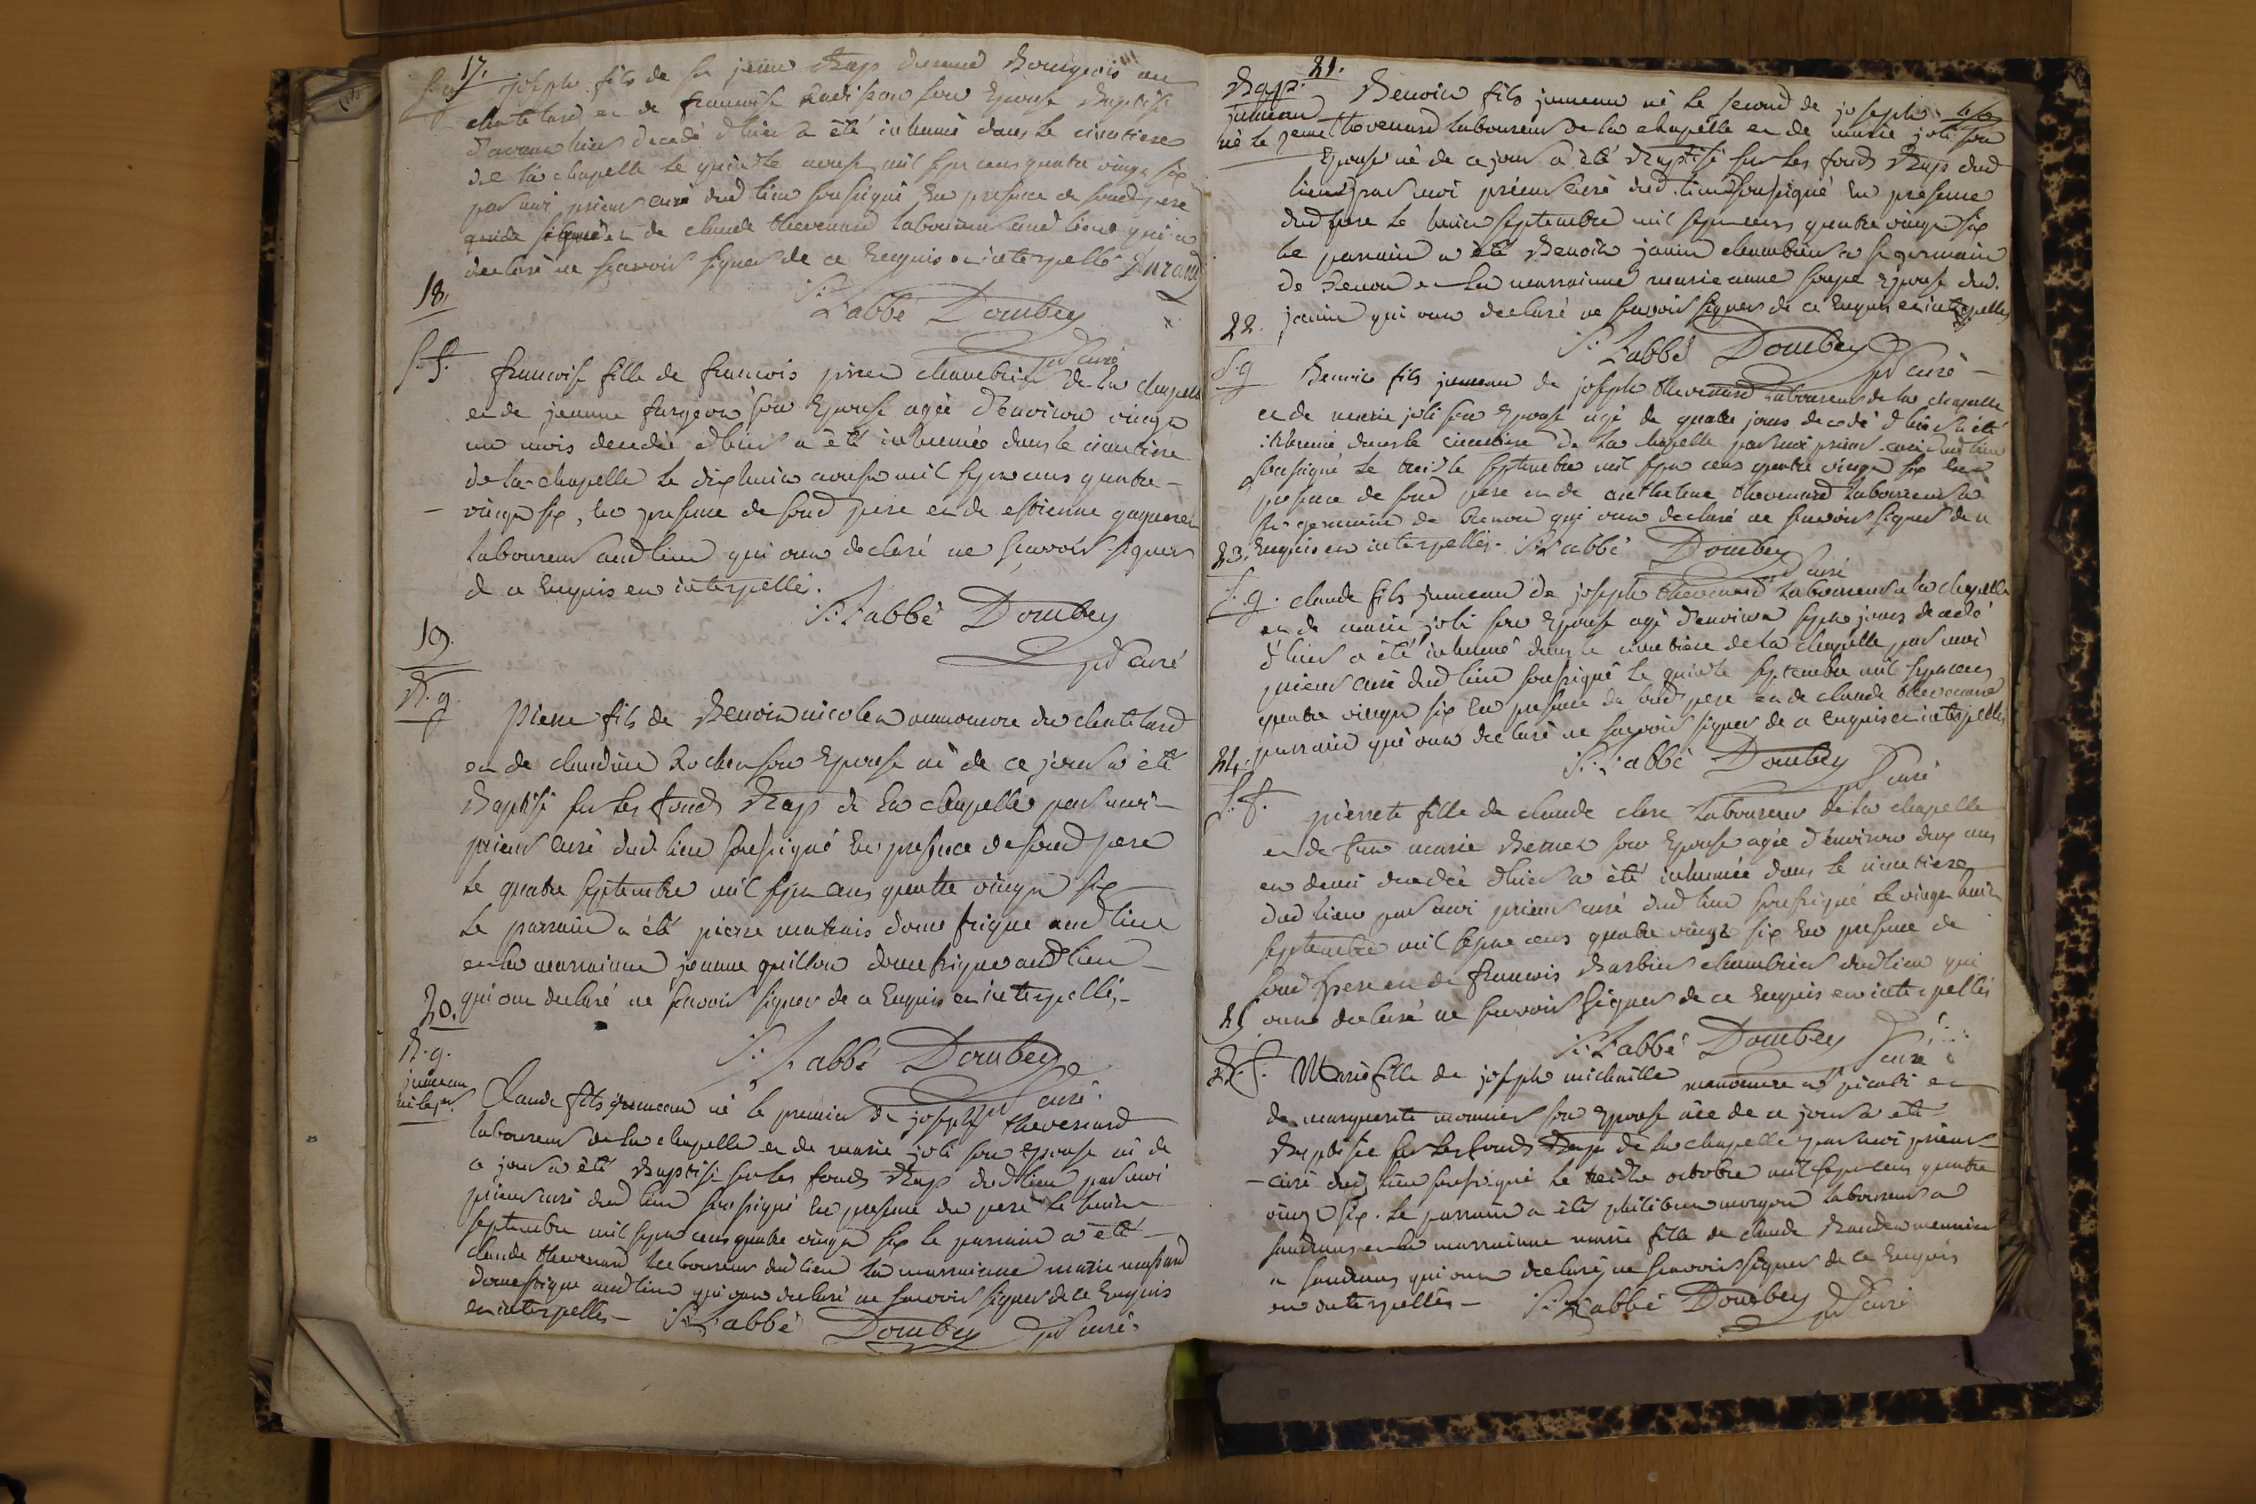 17.
joseph fils de jean Bap durand Bourgeois au
chatelard et de francoise son Epouse Baptisé
d'avant hier decedé d'hier a été inhumé dans le cimetiere
de la chapelle le quinze aoust mil sept cens quatre vingt six
par moi prieur curé dud lieu soussigné En presence de soud pere
et de claude thevenard laboureur aud lieu qui a
declaré ne scavoir signer de ce Enquis et interpellé Durand
S: L'abbé Dombey
pr curé
18.
S. f.
francoise fille de francois chambrier de la chapelle
et de jeanne furgeon son Epouse agée d'environ vingt
un mois decedée d'hier a été inhumée dans le cimetiere
de la chapelle le dix huit aoust mil sept cens quatre
vingt six, en presence de soud pere et de estienne
laboureur aud lieu qui ont declaré ne scavoir signer
de ce Enquis et interpellés.
S: L'abbé Dombey
pr curé
19.
B. g.
pierre fils de Benoit nicolet manouvre du chatelard
et de claudine Rochet son Epouse né de ce jour a été
Baptisé sur les fonds Bap de la chapelle par moi
prieur curé dud lieu soussigné En presence de soud pere
le quatre septembre mil sept cens quatre vingt six
le parrain a été pierre mathais domestique aud lieu
et la marrainne jeanne guillon domestique aud lieu
qui ont declaré ne scavoir signer de ce Enquis et interpellés
S: L'abbé Dombey
pr curé.
20.
B. g.
jumeau
né le 1er.
Claude fils jumeau né le premier de joseph thevenard
laboureur de la chapelle et de marie joli son Epouse né de
ce jour a été Baptisé sur les fonds Bap dud lieu par moi
prieur curé dud lieu soussigné En presence du pere le huit
septembre mil sept cens quatre vingt six le parrain a été
claude thevenard laboureur dud lieu la marrainne marie
domestique aud lieu qui ont declaré ne scavoir signer de ce Enquis
et interpellés S: L'abbé Dombey pr curé.
21.
Bap.
jumeau
né le 2eme
Benoit fils jumeau né le second de joseph
thevenard laboureur de la chapelle et de marie joli son
Epouse né de ce jour a été Baptisé sur les fonds Bap dud
lieu par moi prieur curé dud lieu soussigné En presence
dud pere le huit septembre mil sept cens quatre vingt six
le parrain a été Benoit janin chambrier a st germain
de Renon et la marrainne marie anne Epouse dud.
janin qui ont declaré ne scavoir signer de ce Enquis et interpellés
S: L'abbé Dombey
pr curé
22.
S. g
Benoit fils jumeau de joseph thevenard laboureur de la chapelle
et de marie joli son Epouse agé de quatre jours decedé d'hier a été
inhumé dans le cimetiere de la chapelle par moi prieur curé dud lieu
soussigné le treize septembre mil sept cens quatre vingt six En
presence de soud pere et de thevenard laboureur a
st germain de Renon qui ont declaré ne scavoir signer de ce
Enquis et interpellés. S: L'abbé Dombey
pr curé
23.
S. g.
claude fils jumeau de joseph thevenard laboureur a la chapelle
et de marie joli son Epouse agé d'environ sept jours decedé
d'hier a été inhumé dans le cimetiere de la chapelle par moi
prieur curé dud lieu soussigné le quinze septembre mil sept cens
quatre vingt six En presence de soud pere et de claude thevenard
parrain qui ont declaré ne scavoir signer de ce enquis et interpellés
S: L'abbé Dombey
pr curé
24.
S. f.
pierrete fille de claude clerc laboureur de la chapelle
et de feue marie Bernet son Epouse agée d'environ deux ans
et demi decedée d'hier a été inhumée dans le cimetiere
dud lieu par moi prieur curé dud lieu soussigné le vingt huit
septembre mil sept cens quatre vingt six En presence de
soud pere et de francois Barbier chambrier dud lieu qui
ont declaré ne scavoir signer de ce Enquis et interpellés
S: L'abbé Dombey
pr curé
25
B. f.
Marie fille de joseph michaille manouvre a picati et
de marguerite monnier son Epouse née de ce jour a été
Baptisée sur les fonds Bap de la chapelle par moi prieur
curé dud lieu soussigné le treize octobre mil sept cens quatre
vingt six. le parrain a été philibert morgon laboureur a
sandrans et la marrainne marie fille de claude meunier
a sandrans qui ont declaré ne scavoir signer de ce Enquis
et interpellés S: L'abbé Dombey pr curé